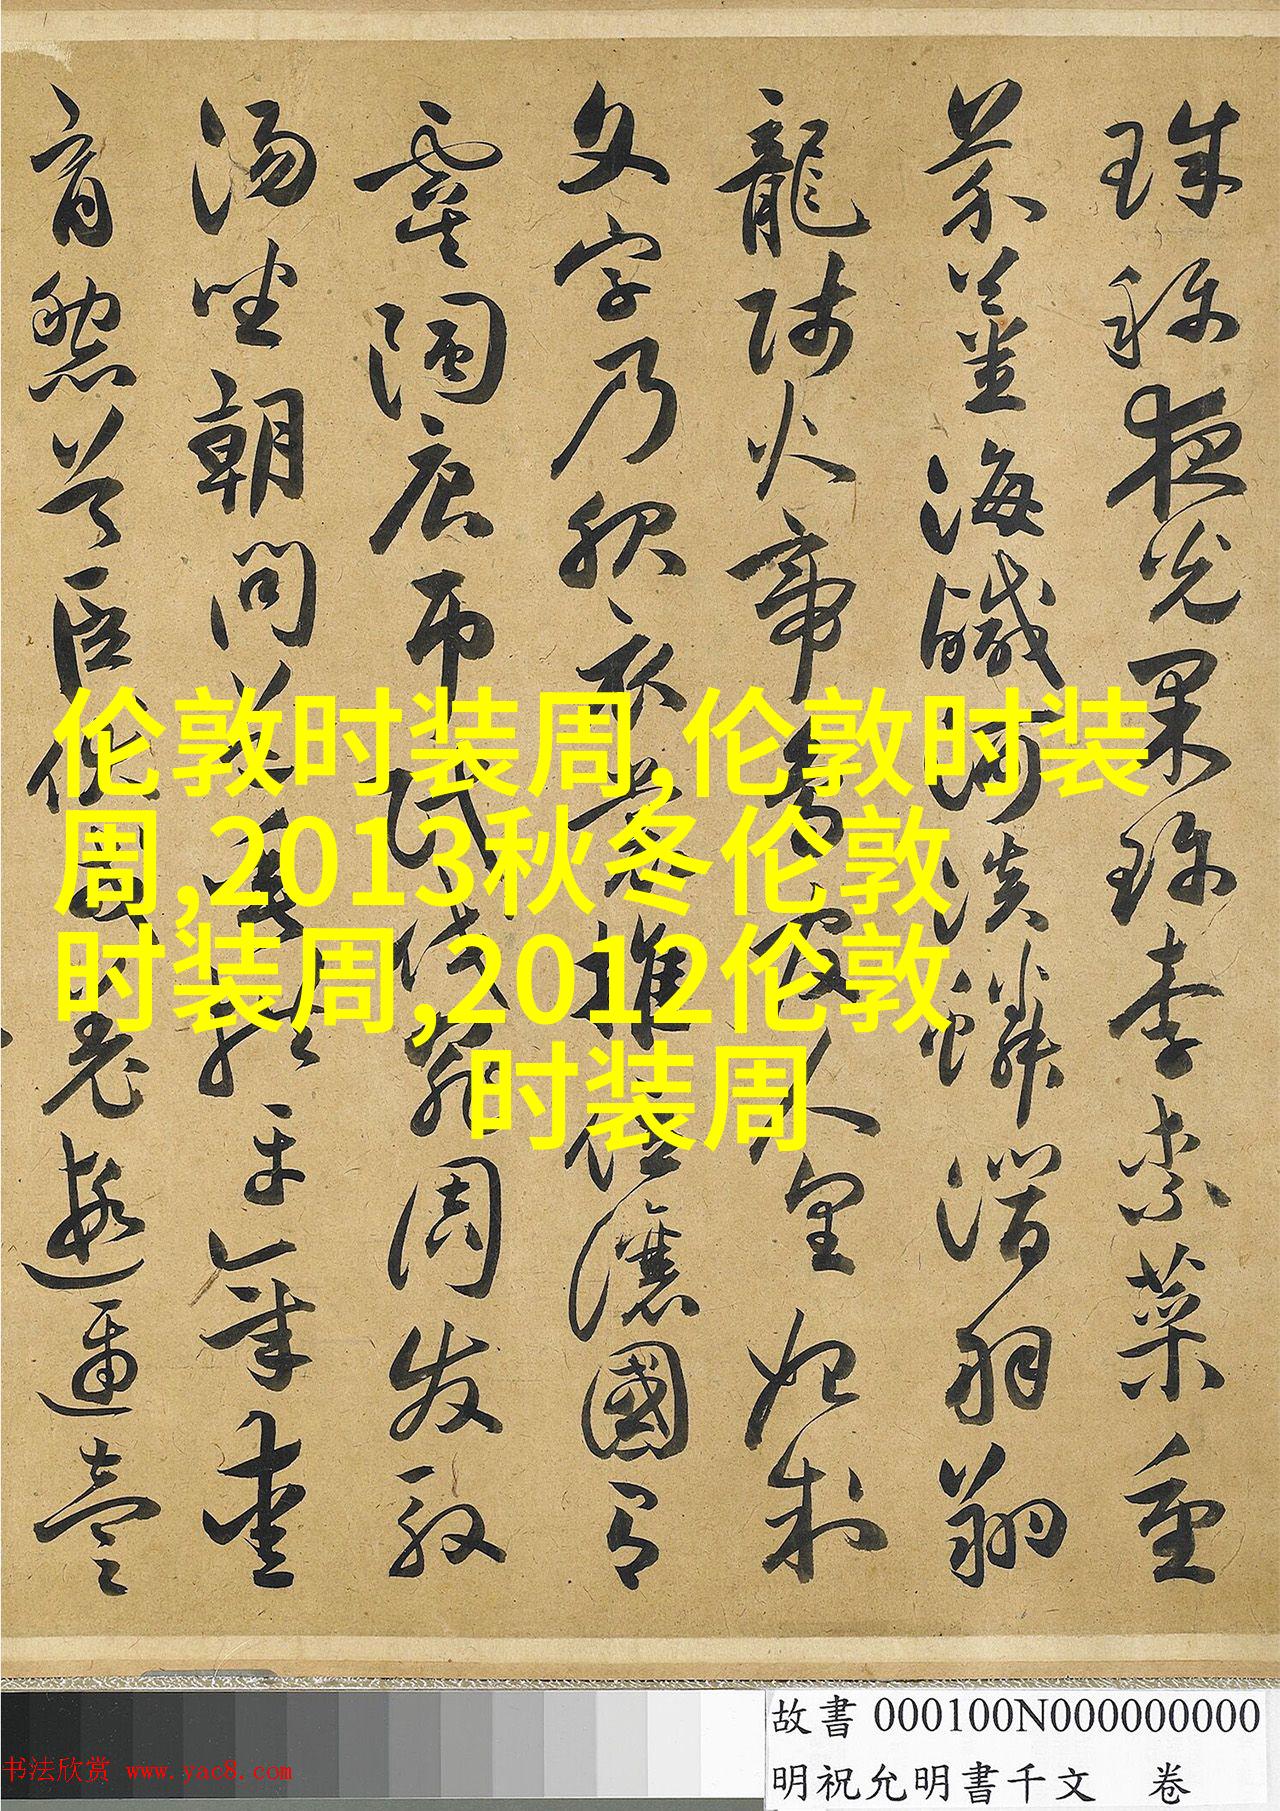 珠称夜光果珍李柰菜重
芥薑海鹹河淡鱗潛羽翔
龍師火帝鳥官人皇始制
文字乃服衣裳推位讓國有
虞陶唐弔民伐罪周發殷
湯坐朝問道垂拱平章愛
育黎首臣伏戎羌遐邇壹
伦敦时装周,伦敦时装
周,2013秋冬伦敦
时装周,2012伦敦
时装周
故書 000100N000000000
明祝允明書千文 卷
书法欣赏 www.yac8.com